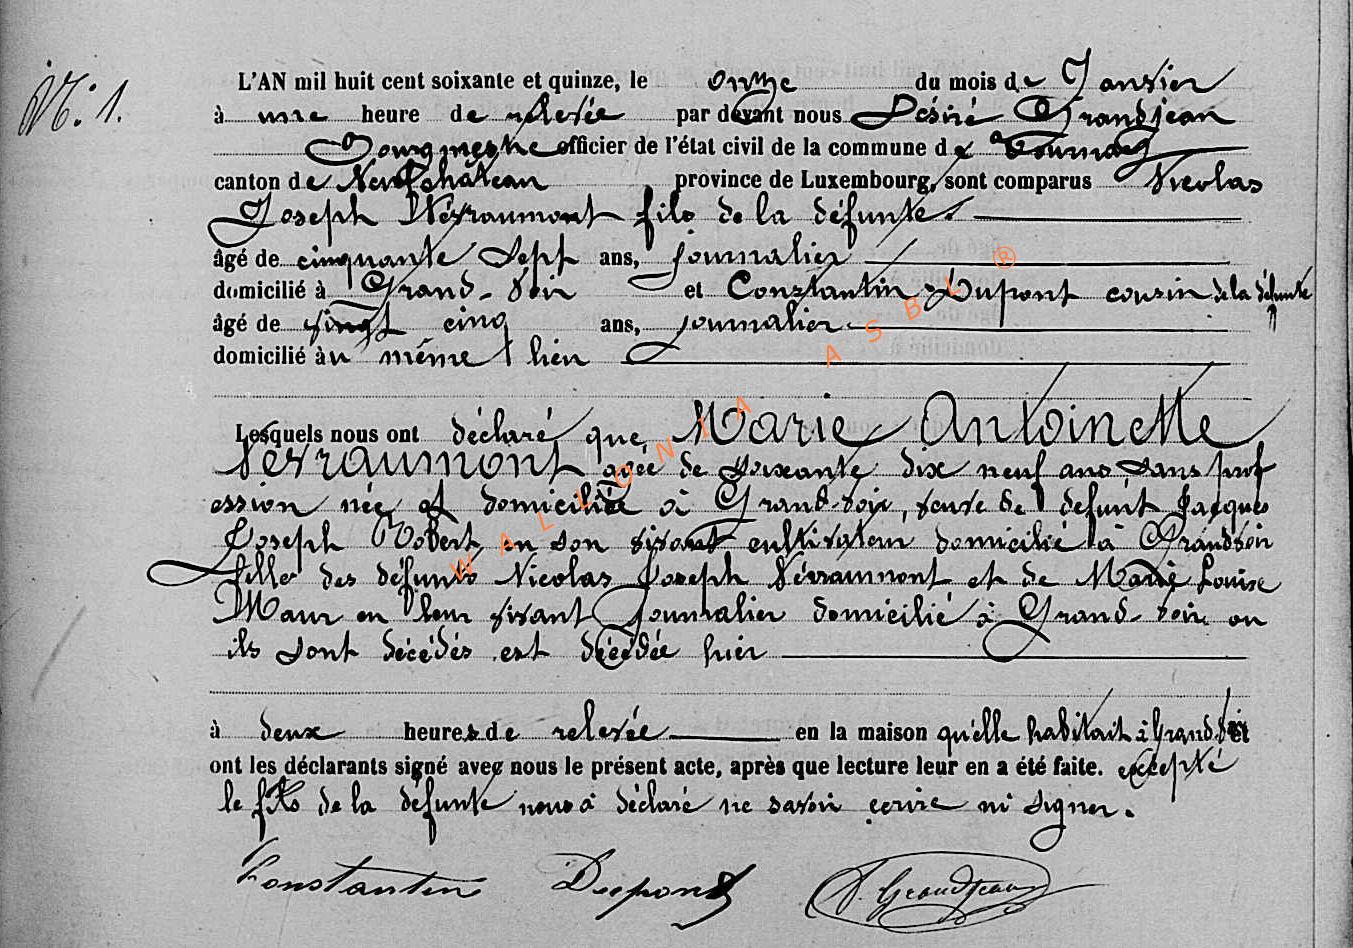 N°. 1.
L'AN mil huit cent soixante et quinze, le onze du mois de Janvier
à une heure de relevée par devant nous Désiré Grandjean
Bourgmestre officier de l'état civil de la commune de Tournay
canton de Neufchâteau province de Luxembourg, sont comparus Nicolas
Joseph Névraumont fils de la défunte
âgé de cinquante sept ans, journalier
domicilié à Grand-Voir et Constantin Dupont cousin de la défunte
âgé de vingt cinq ans, journalier
domicilié au même lieu
Lesquels nous ont déclaré que Marie Antoinette
Névraumont agée de soixante dix neuf ans sans prof
ession née et domiciliée à Grand-voir, veuve de défunt Jacques
Joseph Robert en son vivant cultivateur domicilié à Grandvoir
fille des défunts Nicolas Joseph Névraumont et de Marie Louise
Maur en leur vivant journalier domicilié à Grand-voir ou
ils sont décédés est décédée hier
à deux heures de relevée en la maison qu'elle habitait à Grandvoir
ont les déclarants signé avec nous le présent acte, après que lecture leur en a été faite. excepté
le fils de la défunte nous a déclaré ne savoir ecrire ni signer.
Constantin Dupont D. Grandjean
WALLONIA ASBL ®